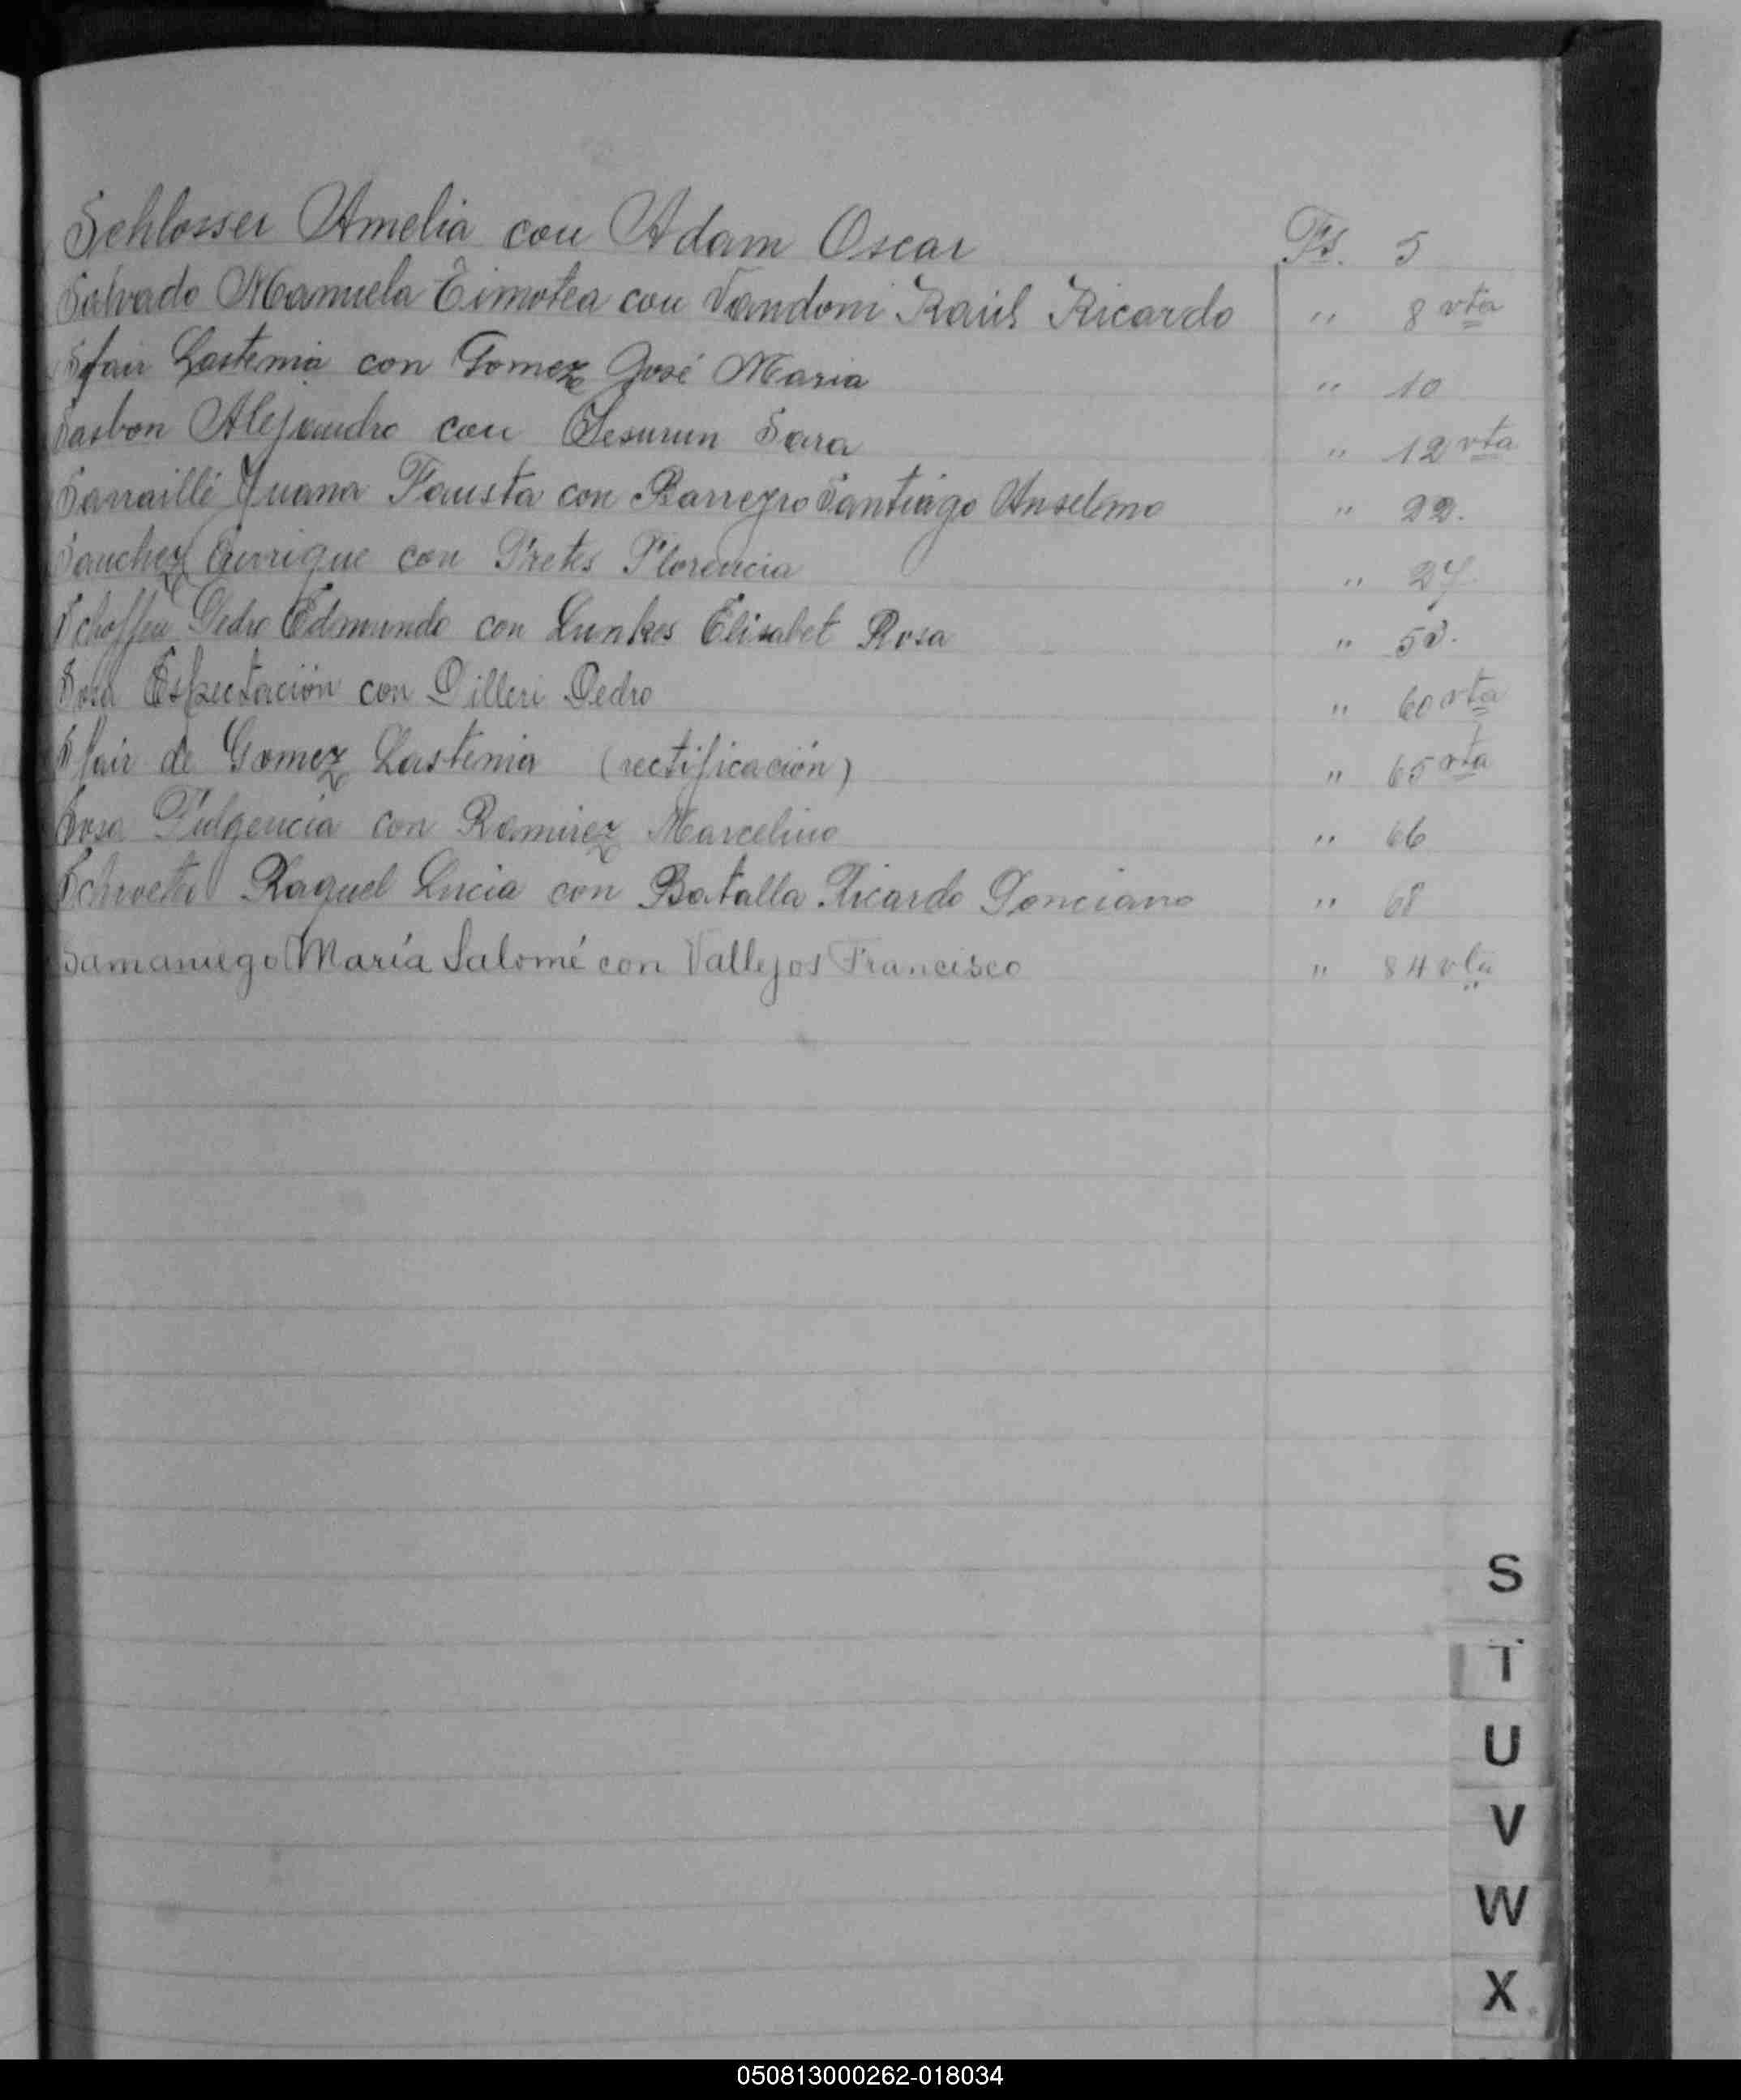 Schlosser Amelia con Adam Oscar Fs. 5
Salvado Manuela Timotea con Vandoni Raúl Ricardo " 8 vta
Sfair Lastenia con Gomez José Maria " 10
Sasbon Alejandro con Jesurun Sara " 12 vta
Sarraillé Juana Fausta con Barreyro Santiago Anselmo " 22.
Sanchez Enrique con Pretes Florencia " 27
Schoffen Pedro Edmundo con Lunkes Elisabet Rosa " 50.
Sosa Espectación con Pilleri Pedro " 60 vta
Sfair de Gomez Lastenia (rectificación) " 65 vta
Sosa Fulgencia con Ramirez Marcelino " 66
Raquel Lucia con Batalla Ricardo Ponciano " 68
Samaniego María Salomé con Vallejos Francisco " 84 vta
S
T
U
V
W
X
050813000262-018034